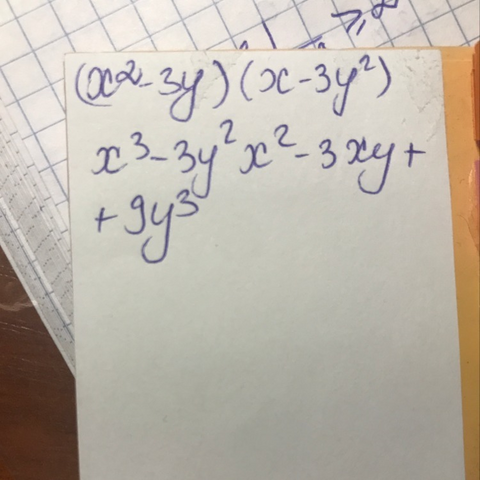 (x²-3y)(x-3y²)
x³-3y²x²-3xy+
+9y³